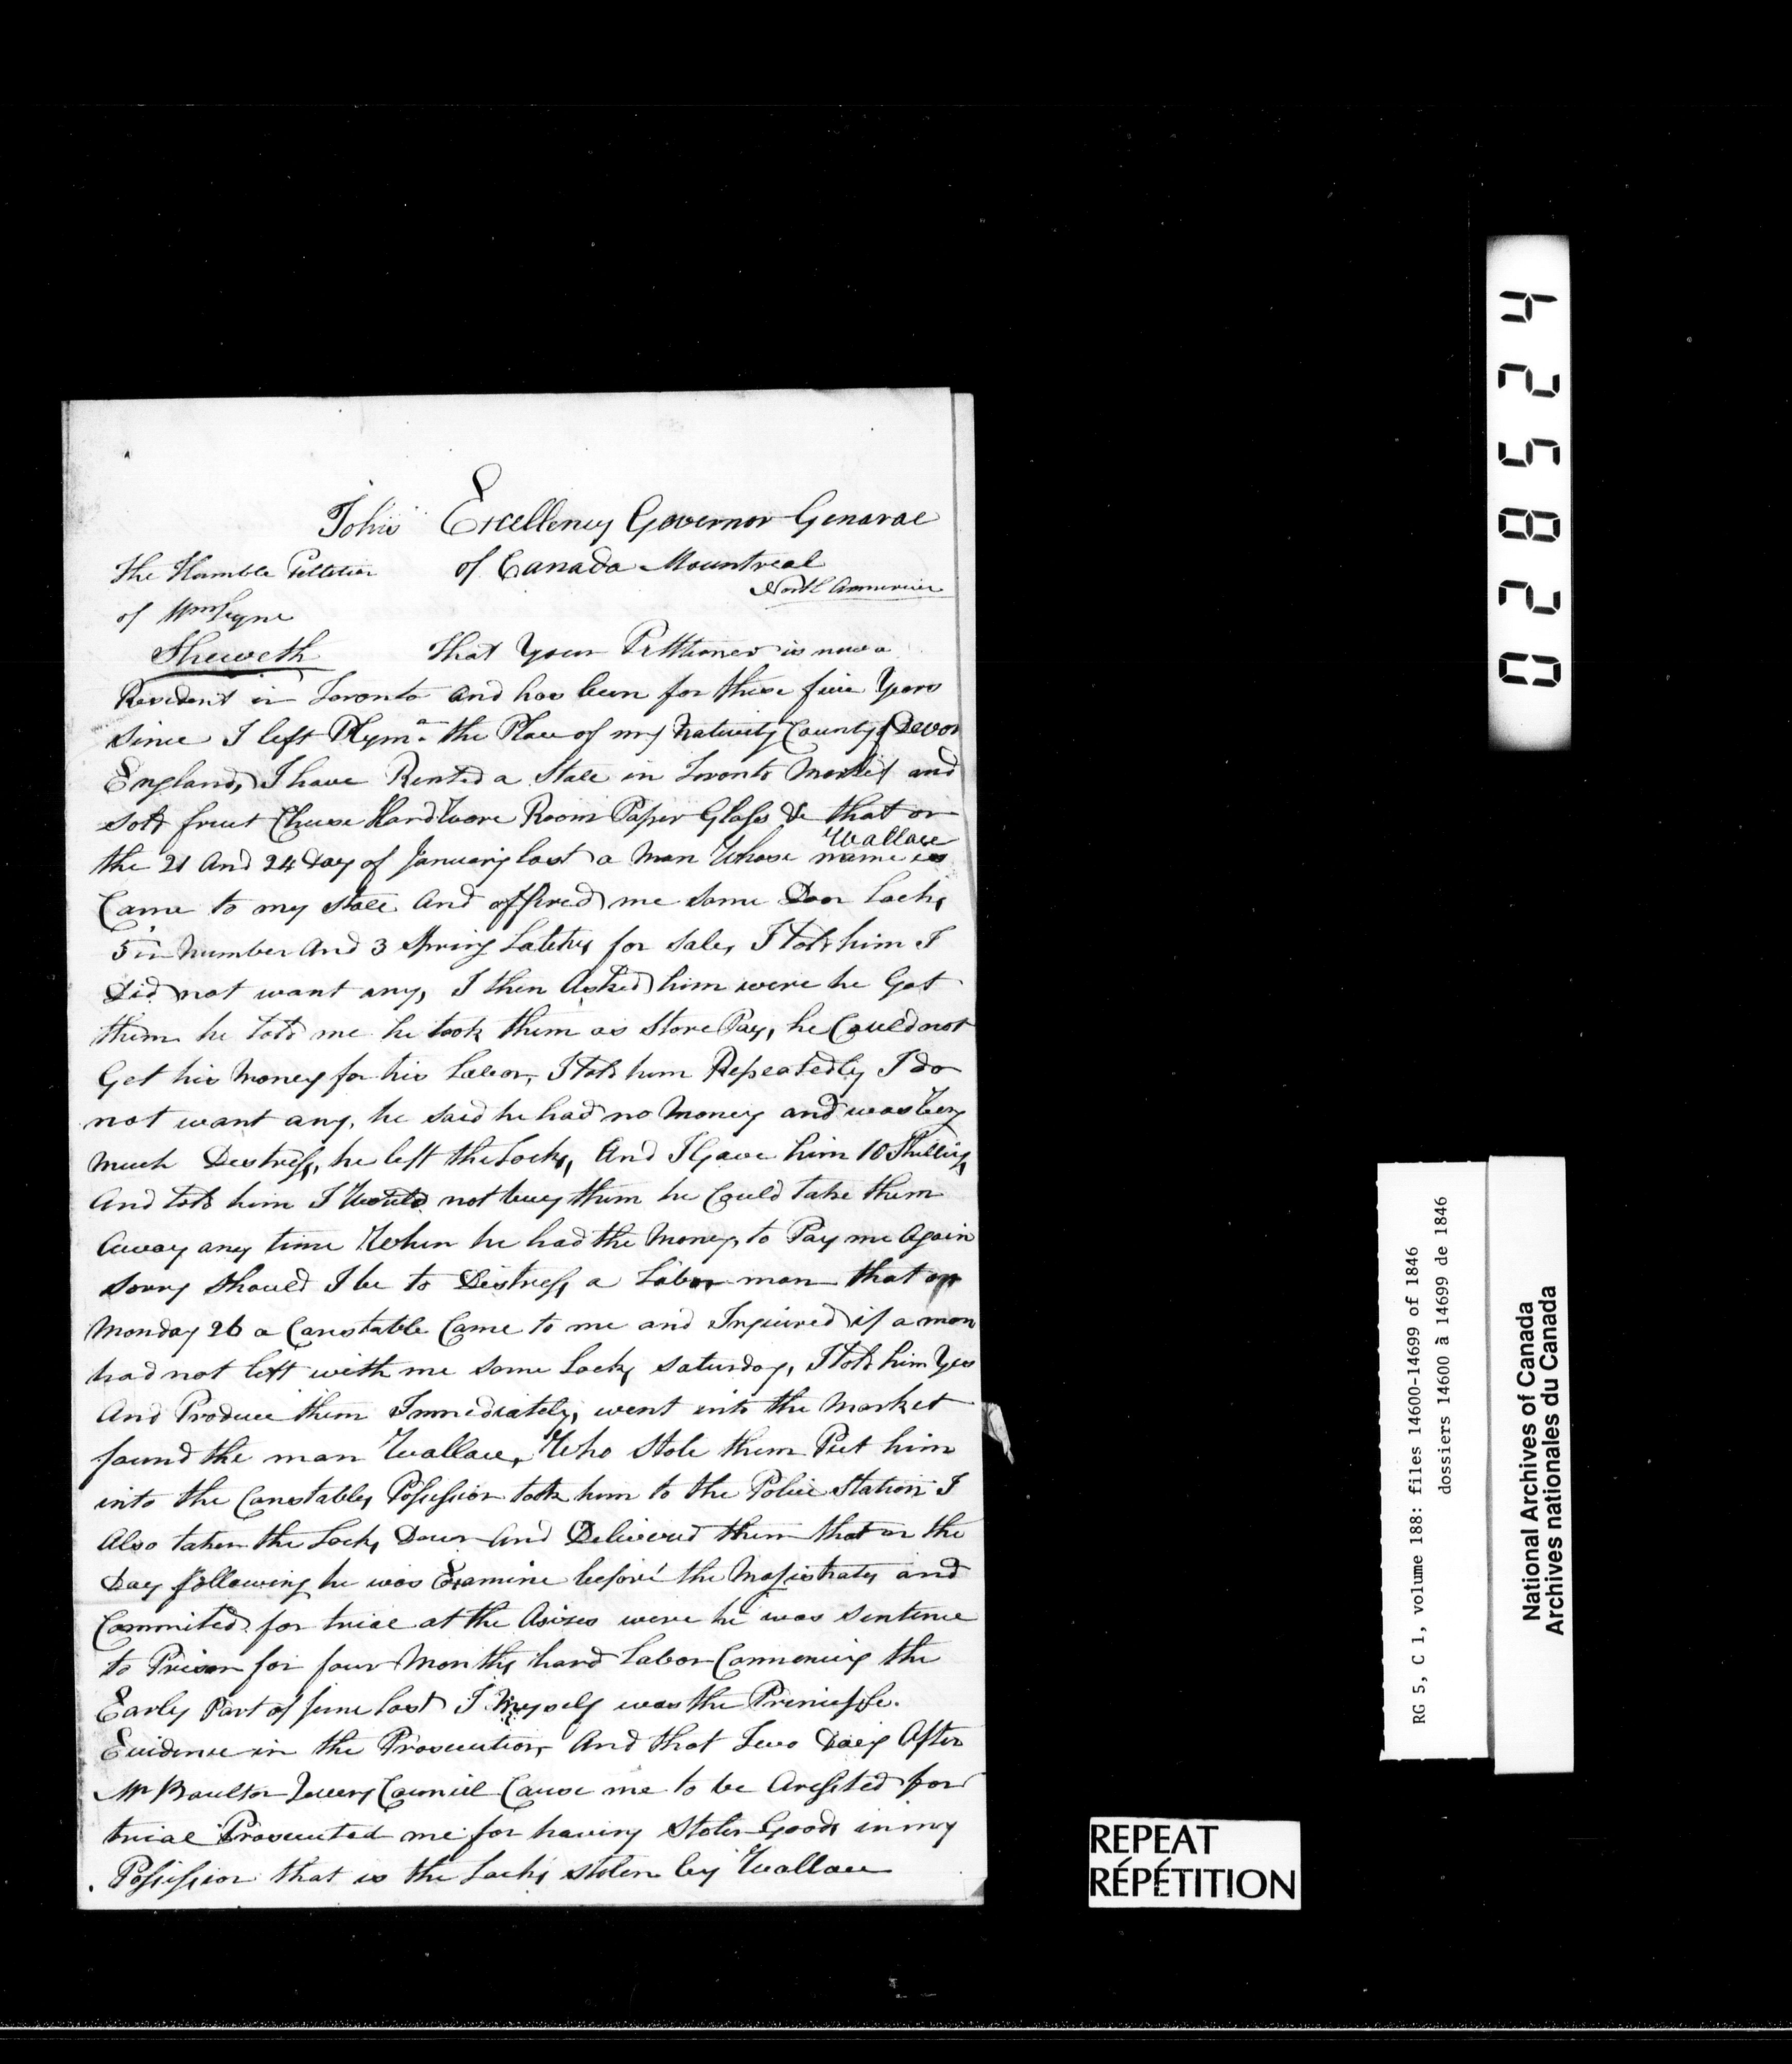 Tohis Excellency Governor Genarae
of Canada Mountreal
North Ammerica
The Humble Petterion
of Wm
Sheweth That Your Pettioner is now a
Resident in Toronto and has been for these five Years
since I left Plym.o the Place of my Nativity County of Devon
England, I have Rented a Stale in Toronto Market and
sold fruit Cheese Hardware Room Paper Glass &c that on
the 21 And 24 Day of January last a Man Whose name is Wallace
Came to my stale And offered me some Door Locks,
5 in Number And 3 Spring Latchs for sale, I told him I
Did not want any, I then Asked him were he Got
them he told me he took them as Store Pay, he Could not
Get his Money for his Labor, I told him Repeatedly I do
not want any, he said he had no Money and was Very
Much Destress, he left the Locks, And I Gave him 10 Shillings
And told him I Would not buy them he Could take them
Away any time When he had the Money, to Pay me Again
sorry should I be to Distress a Labor man that on
Monday 26 a Constable Came to me and Inquired if a man
had not left with me some Locks saturday, I told him Yes
And Produce them Immediately, went into the Market
found the man Wallace, Who Stole them Put him
into the Constables Possession took him to the Police Station I
Also taken the Locks Down And Delivered them that on the
Day following he was Examine before the Magistrates and
Commited for triae at the Asises were he was sentence
to Prison for four Months hard Labor Commencing the
Early Part of June last I Myself was the Princisple
Evidence in the Prosecution, And that Two Days After
Mr Boulton Councill Cause me to be Aressted for
triae Prosecuted me for having Stolen Goods in my
Possession that is the Locks stolen by Wallace
028524
RG 5, C 1, volume 188: files 14600-14699 of 1846
dossiers 14600 à 14699 de 1846
National Archives of Canada
Archives nationales du Canada
REPEAT
RÉPÉTITION